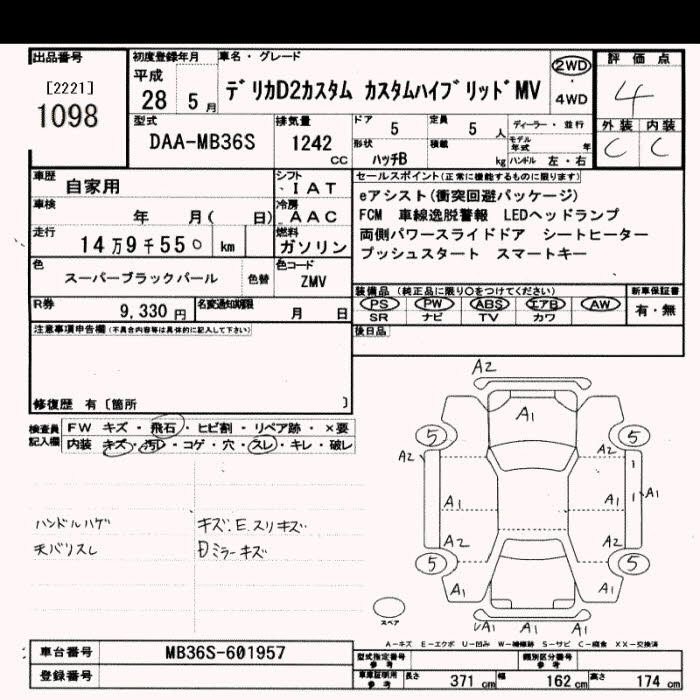 出品番号
[2221]
1098
初度登録年月
平成
28 5 月
車名・グレード
ﾃﾞﾘｶD2ｶｽﾀﾑ ｶｽﾀﾑﾊｲﾌﾞﾘｯﾄﾞMV
2WD
・
4WD
評価点
4
外装 内装
C C
型式
DAA-MB36S
排気量
1242
CC
ドア 5
定員 5 人
形状
ハッチB
積載 kg
ディーラー・並行
モデル年式 年
ハンドル 左・右
車歴 自家用
車検 年 月( 日)
走行 14万9千550 km
シフト
IAT
冷房
AAC
燃料
ガソリン
セールスポイント(正常に機能するものに限ります)
eアシスト(衝突回避パッケージ)
FCM 車線逸脱警報 LEDヘッドランプ
両側パワースライドドア シートヒーター
プッシュスタート スマートキー
色
スーパーブラックパール
色替
色コード
ZMV
R券 9,330 円
名変通知期限 月 日
装備品 (純正品に限り○をつけてください)
PS PW ABS エアB AW
SR ナビ TV カワ
新車保証書
有・無
注意事項申告欄(不具合内容等は具体的に記入して下さい)
後日品
修復歴 有〔箇所 〕
検査員記入欄
FW キズ・飛石・ヒビ割・リペア跡・×要
内装 キズ・汚レ・コゲ・穴・スレ・キレ・破レ
ハンドルハゲ
天バリスレ
キズ.E.スリキズ
ミラーキズ
A2
A1
5 5
A2 A2
A1 A1 A1
A2 A2
5 5
A1 A1
A1 A1
スペア
A−キズ E−エクボ U−凹み W−補修跡 S−サビ C−腐食 XX−交換済
車台番号 MB36S-601957
登録番号
型式指定番号
参考
類別区分番号
参考
車庫証明用
参考
長さ 371 cm 幅 162 cm 高さ 174 cm